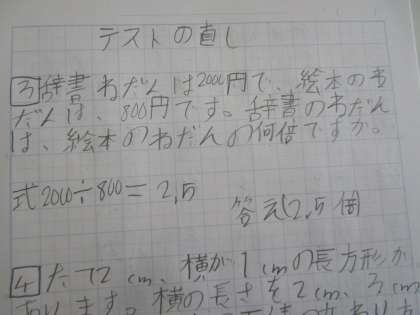 テストの直し
3 辞書ねだんは2000円で、絵本のね
だんは、800円です。辞書のねだん
は、絵本のねだんの何倍ですか。
式2000÷800=2,5
答え2,5倍
4 たて2cm、横が1cmの長方形が
あります。横の長さを2cm、3cm